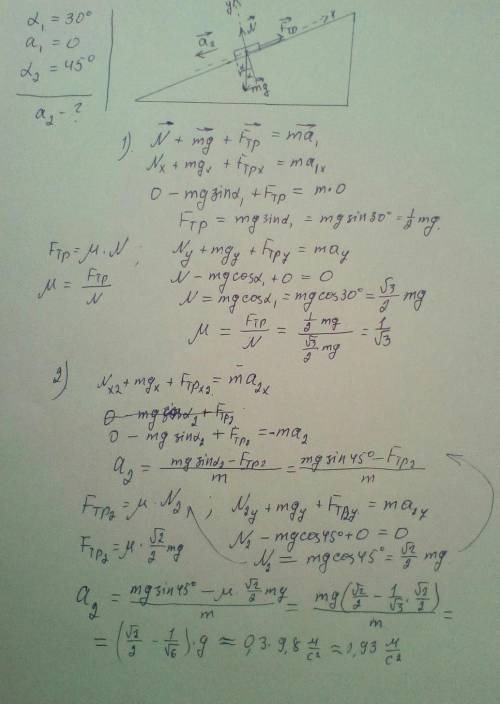 α₁ = 30°
a₁ = 0
α₂ = 45°
a₂ - ?
y
N⃗
F⃗тр
x
a⃗₂
m⃗g
1) N⃗ + m⃗g + F⃗тр = m⃗a₁
Nx + mgx + Fтрx = ma₁x
0 - mg sinα₁ + Fтр = m·0
Fтр = mg sinα₁ = mg sin30° = ½ mg.
Fтр = μ·N ; Ny + mgy + Fтрy = may
μ = Fтр/N N - mg cosα₁ + 0 = 0
N = mg cosα₁ = mg cos30° = √3/2 mg
μ = Fтр/N = (½ mg)/(√3/2 mg) = 1/√3
2) Nx2 + mgx + Fтрx2 = m̄a₂x
0 - mg sinα₂ + Fтр₂
0 - mg sinα₂ + Fтр₂ = -ma₂
a₂ = (mg sinα₂ - Fтр₂)/m = (mg sin45° - Fтр₂)/m
Fтр₂ = μ·N₂ ; N₂y + mgy + Fтр₂y = ma₂y
Fтр₂ = μ·√2/2 mg N₂ - mg cos45° + 0 = 0
N₂ = mg cos45° = √2/2 mg
a₂ = (mg sin45° - μ·√2/2 mg)/m = mg(√2/2 - 1/√3·√2/2)/m =
= (√2/2 - 1/√6)·g ≈ 0,3·9,8 м/с² ≈ 2,93 м/с²